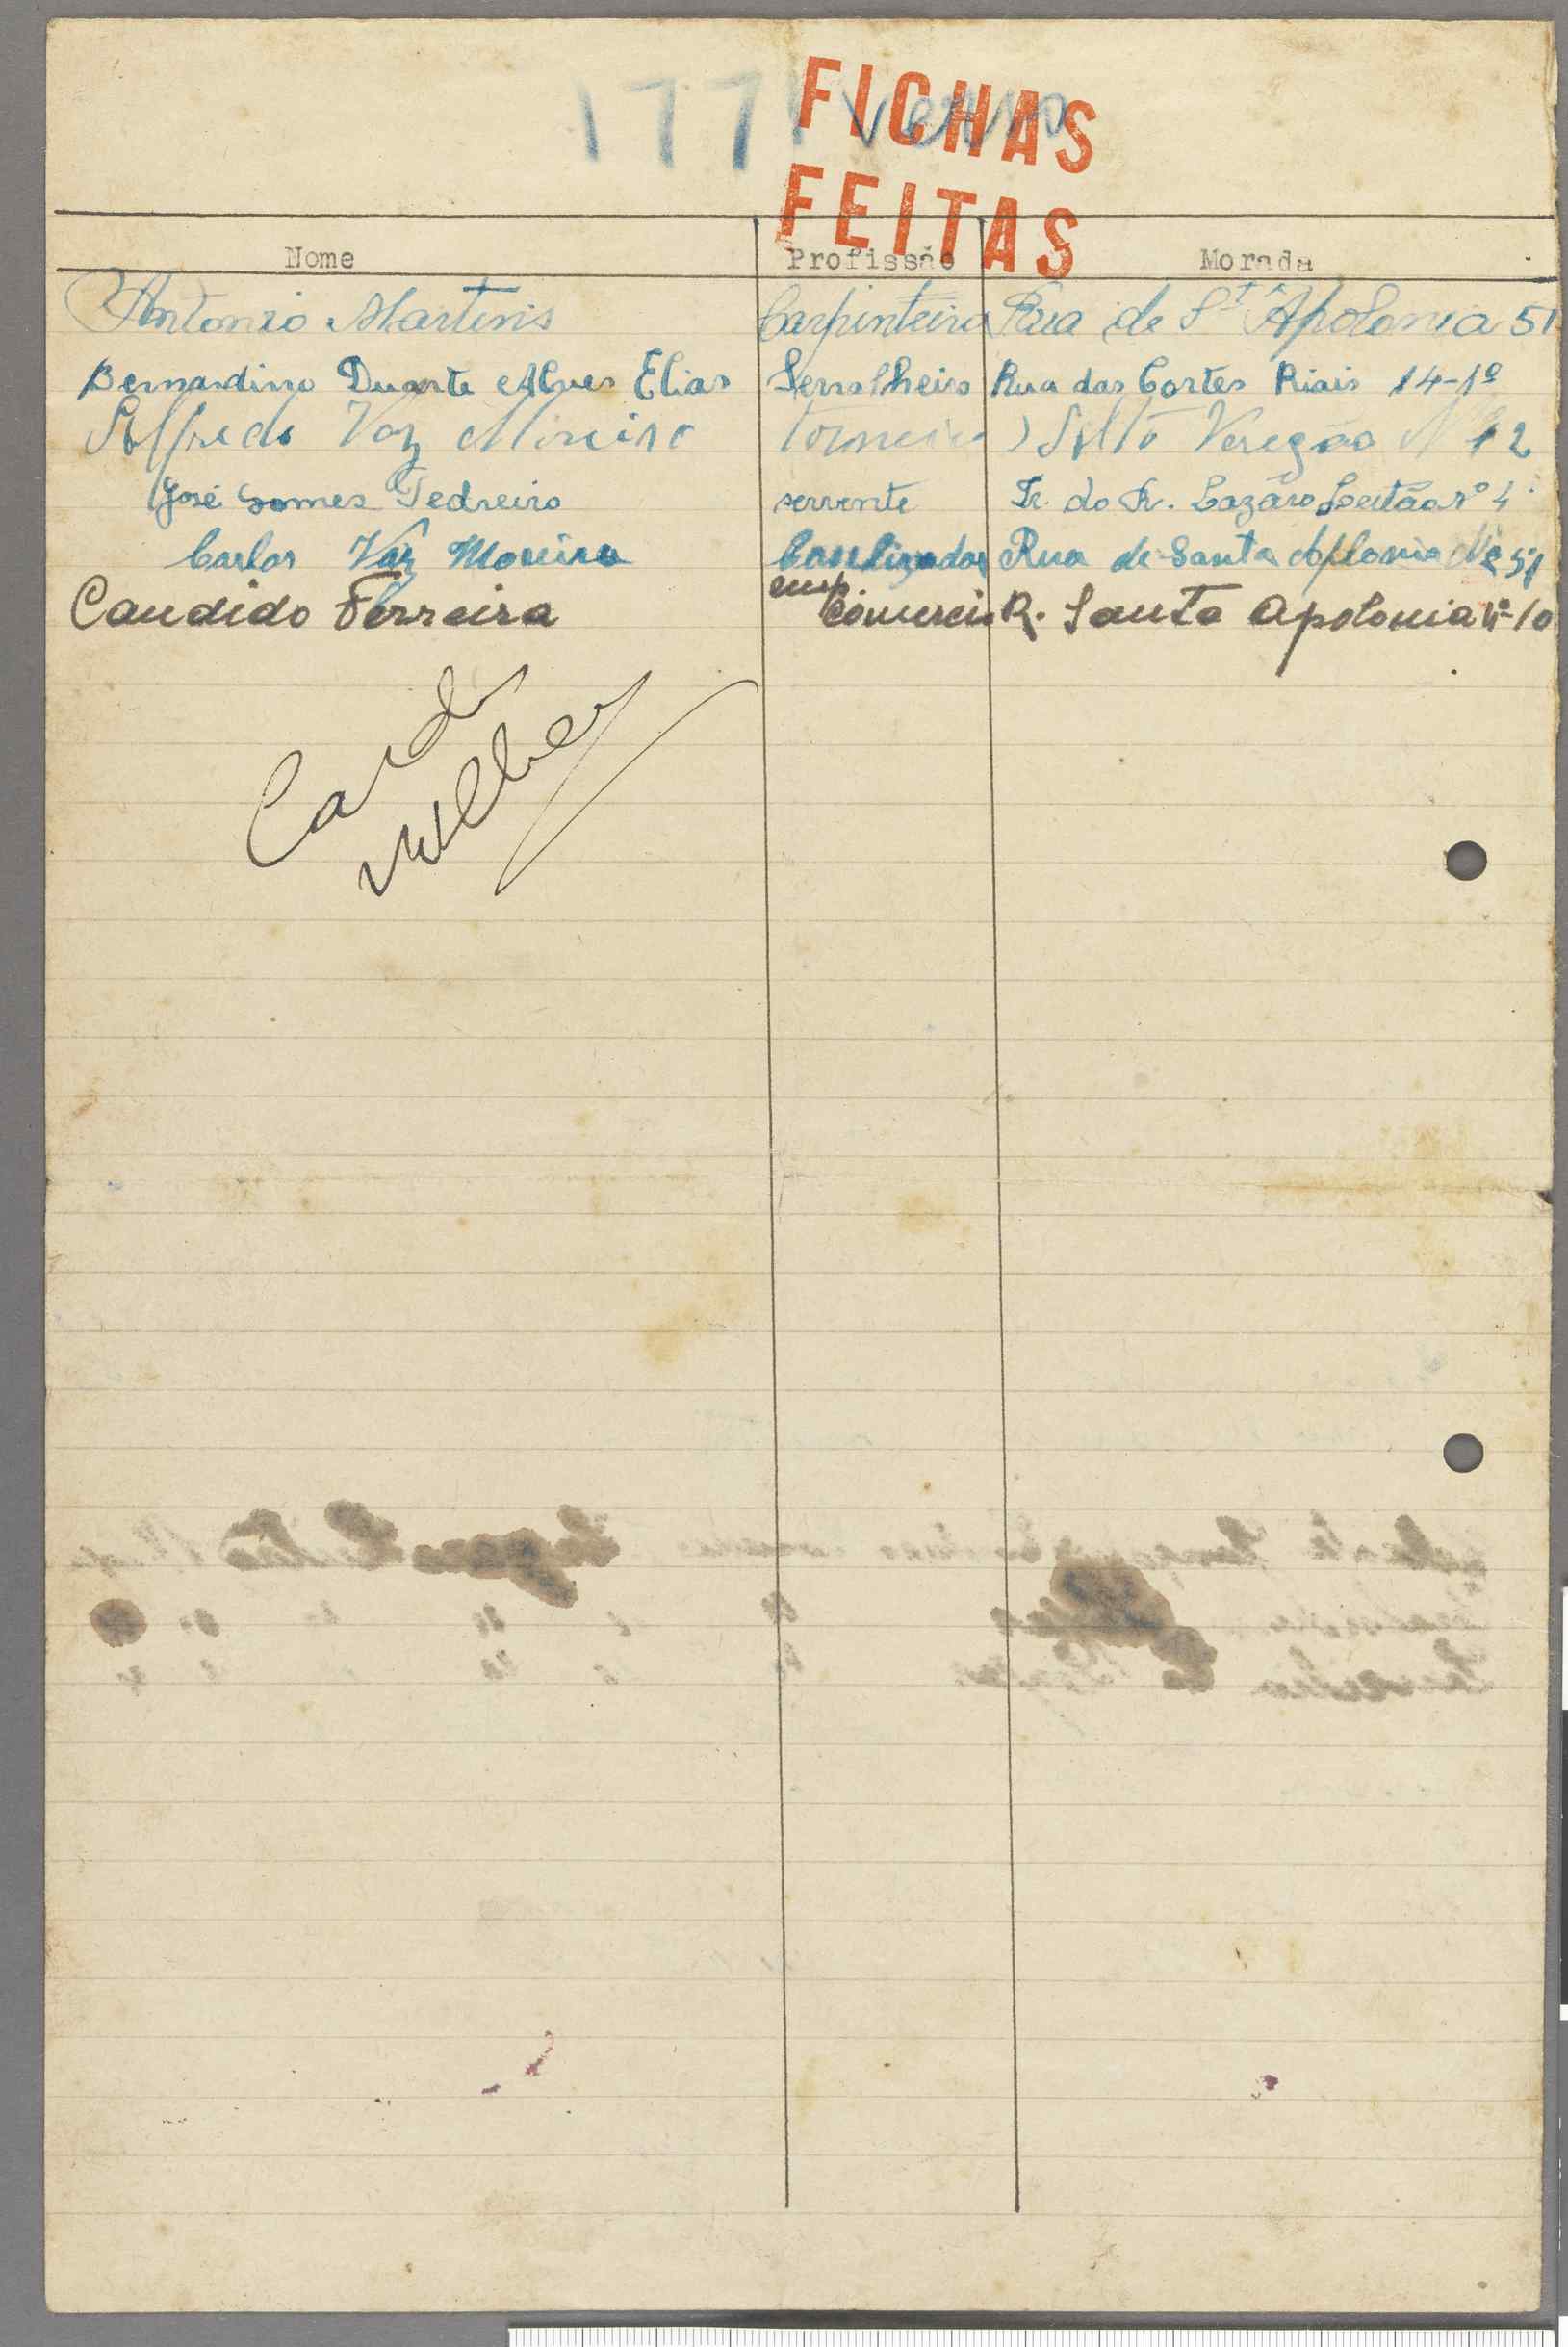 177 verso
FICHAS
FEITAS
Nome Profissão Morada
Antonio Martins Carpinteiro Rua de Stª Apolonia 51
Bernardino Duarte Alves Elias Serralheiro Rua das Cortes Riais 14-1º
Alfredo Vaz Moreira Torneiro Alto Veregão Nº 12
José Gomes Pedreiro servente Tr. do Fr. Lazáro Leitão nº 4
Carlos Vaz Moreira Canlizador Rua de Santa Aplonia Nº 51
Candido Ferreira emp comercio R. Santa Apolonia nº 10